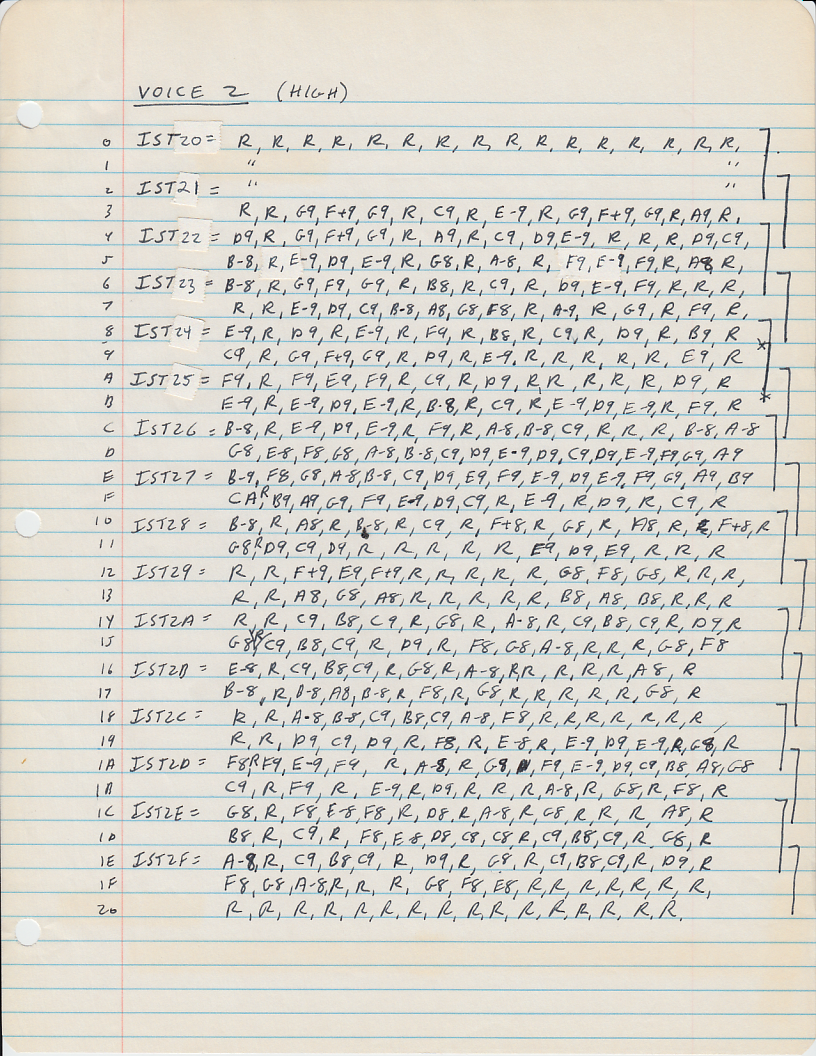 VOICE 2 (HIGH)
0 IST20= R, R, R, R, R, R, R, R, R, R, R, R, R, R, R, R,
1 " "
2 IST21= " "
3 R, R, G9, F+9, G9, R, C9, R, E-9, R, G9, F+9, G9, R, A9, R,
4 IST22= D9, R, G9, F+9, G9, R, A9, R, C9, D9, E-9, R, R, R, D9, C9,
5 B-8, R, E-9, D9, E-9, R, G8, R, A-8, R, F9, E-9, F9, R, A8, R,
6 IST23= B-8, R, G9, F9, G9, R, B8, R, C9, R, D9, E-9, F9, R, R, R,
7 R, R, E-9, D9, C9, B-8, A8, G8, F8, R, A-9, R, G9, R, F9, R,
8 IST24= E-9, R, D9, R, E-9, R, F9, R, B8, R, C9, R, D9, R, B9, R
9 C9, R, G9, F+9, G9, R, D9, R, E-9, R, R, R, R, R, E9, R
A IST25= F9, R, F9, E9, F9, R, C9, R, D9, R R, R, R, R, D9, R
B E-9, R, E-9, D9, E-9, R, B-8, R, C9, R, E-9, D9, E-9, R, F9, R
C IST26= B-8, R, E-9, D9, E-9, R, F9, R, A-8, B-8, C9, R, R, R, B-8, A-8
D G8, E-8, F8, G8, A-8, B-8, C9, D9, E-9, D9, C9, D9, E-9, F9, G9, A9
E IST27= B-9, F8, G8, A-8, B-8, C9, D9, E9, F9, E-9, D9, E-9, F9, G9, A9, B9
F CA, R, B9, A9, G9, F9, E-9, D9, C9, R, E-9, R, D9, R, C9, R
10 IST28= B-8, R, A8, R, B-8, R, C9, R, F+8, R, G8, R, A8, R, F+8, R
11 G8, R, D9, C9, D9, R, R, R, R, R, E9, D9, E9, R, R, R
12 IST29= R, R, F+9, E9, F+9, R, R, R, R, R, G8, F8, G8, R, R, R,
13 R, R, A8, G8, A8, R, R, R, R, R, B8, A8, B8, R, R, R
14 IST2A= R, R, C9, B8, C9, R, G8, R, A-8, R, C9, B8, C9, R, D9, R
15 G8, R, C9, B8, C9, R, D9, R, F8, G8, A-8, R, R, R, G8, F8
16 IST2B= E-8, R, C9, B8, C9, R, G8, R, A-8, R R, R, R, R, A8, R
17 B-8, R, B-8, A8, B-8, R, F8, R, G8, R, R, R, R, R, G8, R
18 IST2C= R, R, A-8, B-8, C9, B8, C9, A-8, F8, R, R, R, R, R, R, R
19 R, R, D9, C9, D9, R, F8, R, E-8, R, E-9, D9, E-9, R, G8, R
1A IST2D= F8, R, F9, E-9, F9, R, A-8, R, G8, F9, E-9, D9, C9, B8, A8, G8
1B C9, R, F9, R, E-9, R, D9, R, R, R, A-8, R, G8, R, F8, R
1C IST2E= G8, R, F8, E-8, F8, R, D8, R, A-8, R, G8, R, R, R, A8, R
1D B8, R, C9, R, F8, E-8, D8, C8, C8, R, C9, B8, C9, R, G8, R
1E IST2F= A-8, R, C9, B8, C9, R, D9, R, G8, R, C9, B8, C9, R, D9, R
1F F8, G8, A-8, R, R, R, G8, F8, E8, R, R, R, R, R, R, R,
20 R, R, R, R, R, R, R, R, R, R, R, R, R, R, R, R.